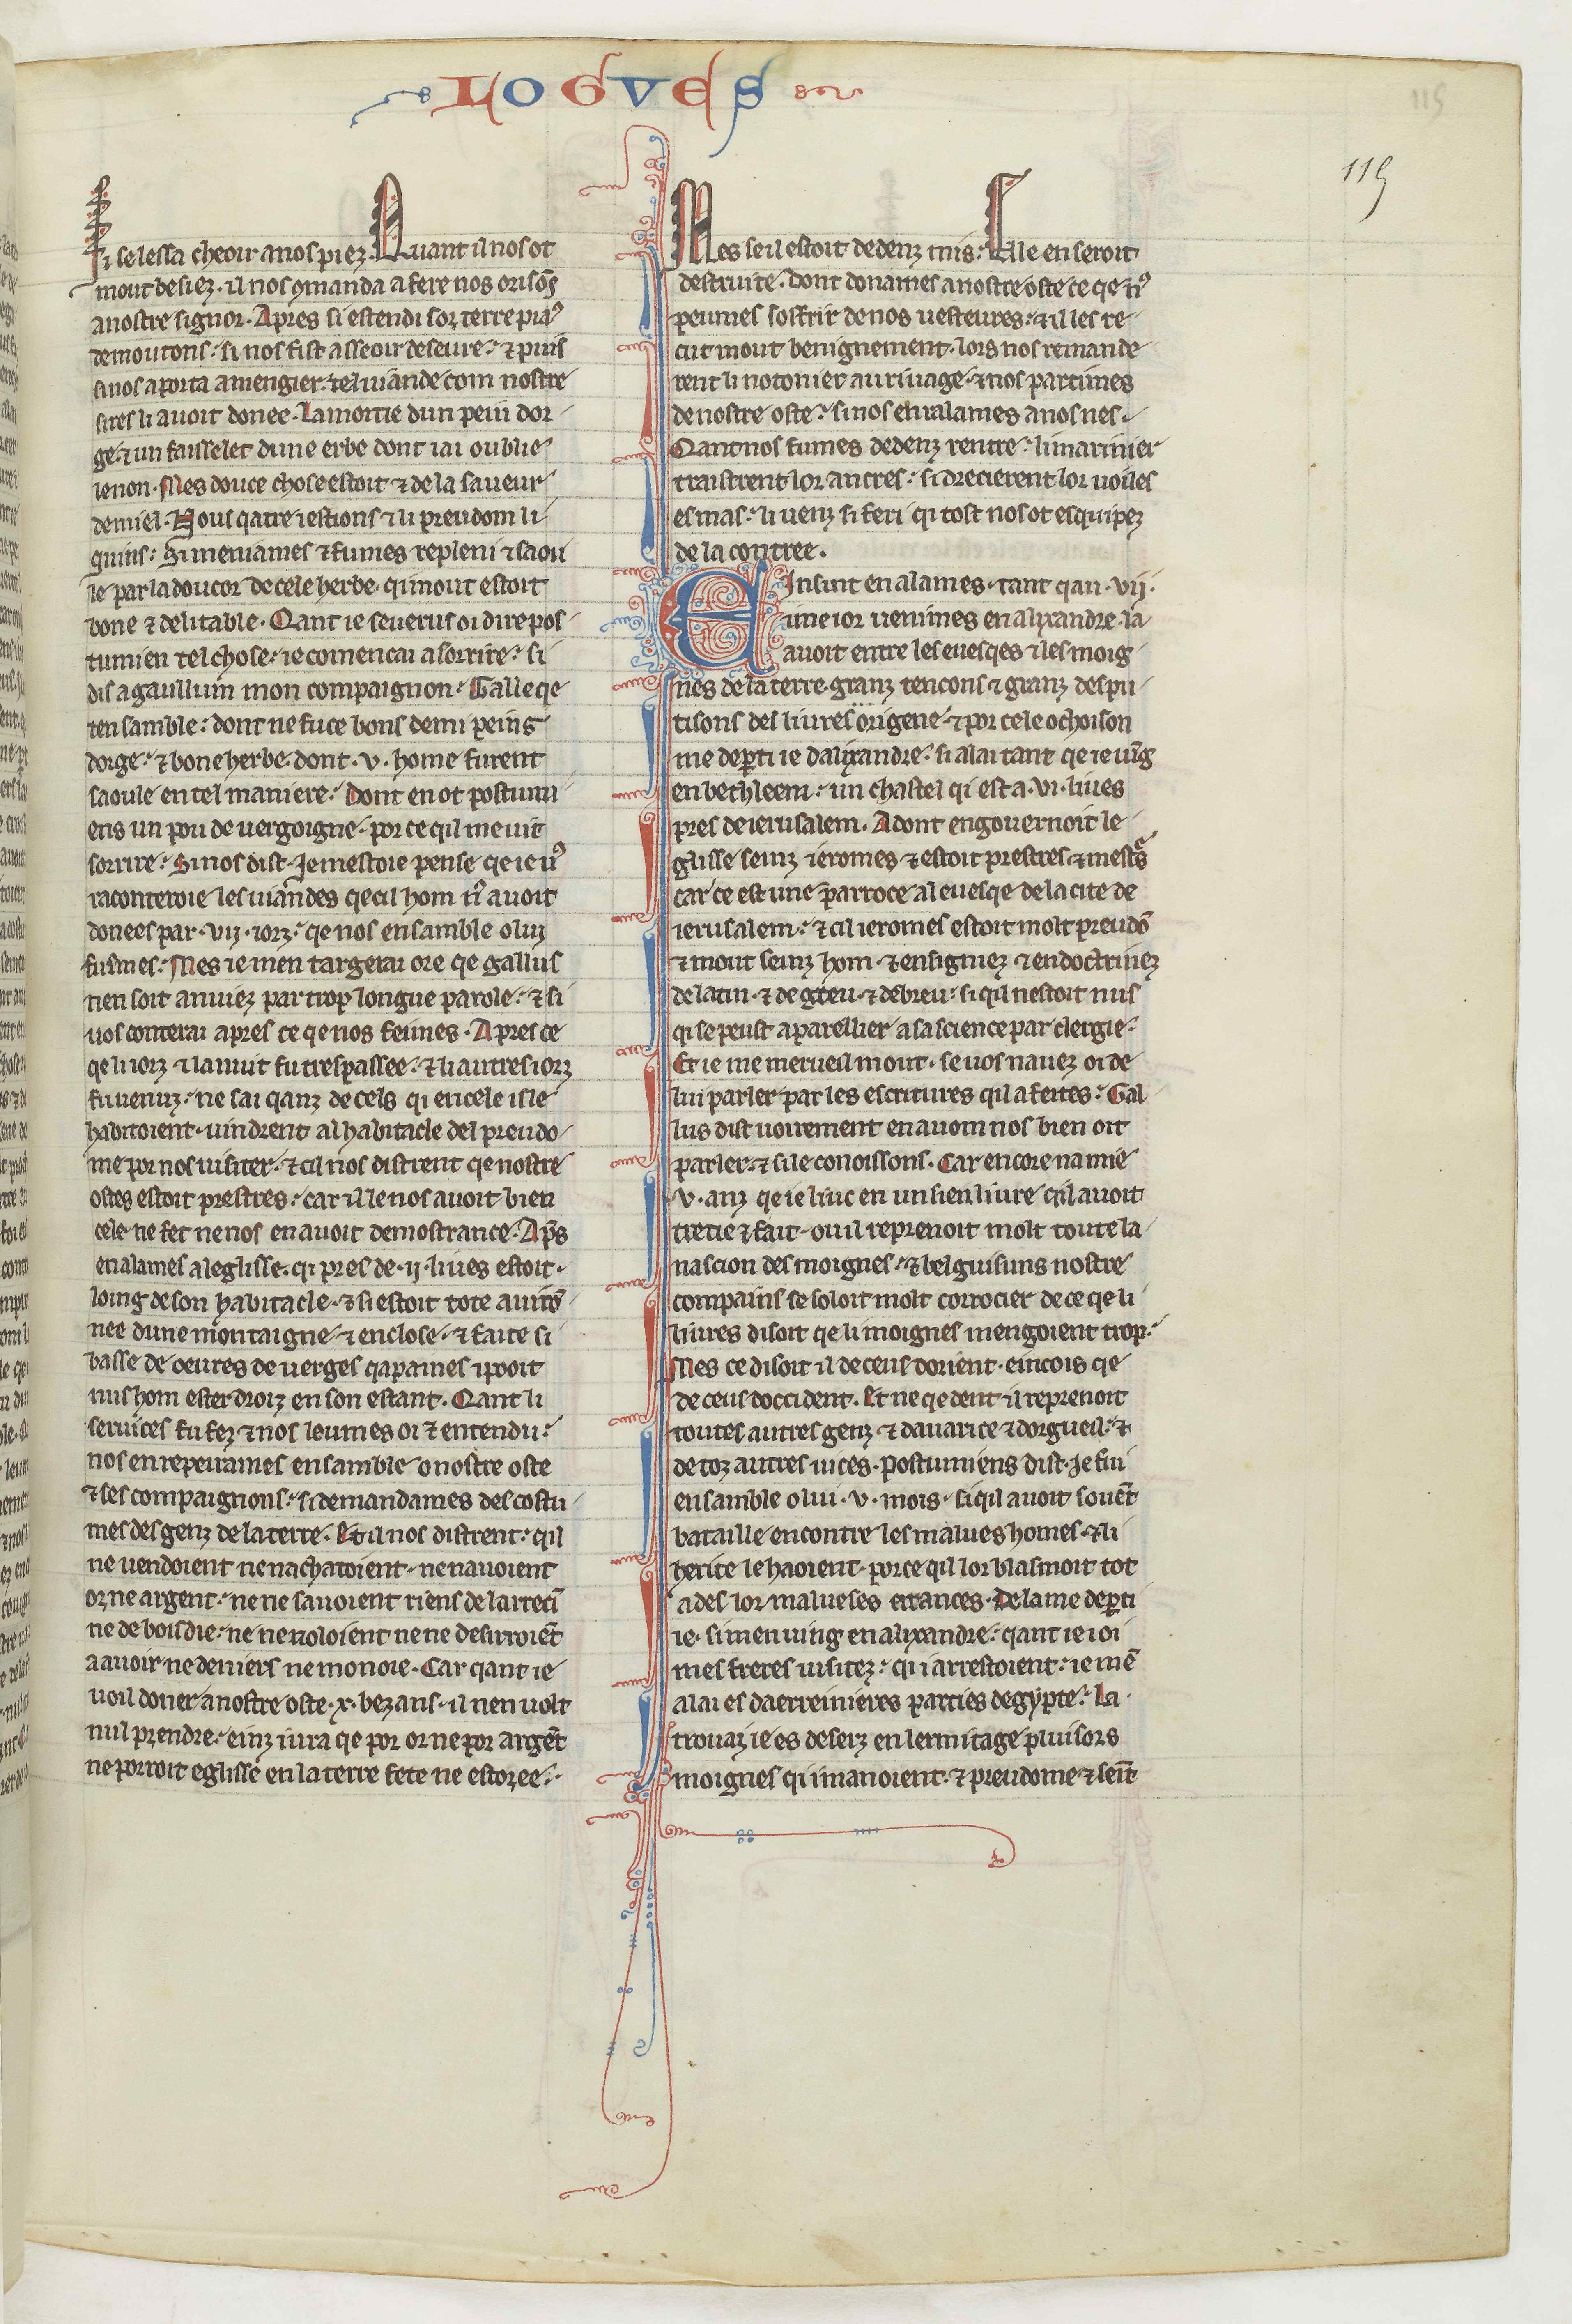 LOGVES
115
119
Si se lessa cheoir a nos piez. Quant il nos ot
mout besiez. il nos ꝯmanda a fere nos orisōs
a nostre signor. Apres si estendi sor terre piaꝰ
de moutons. si nos fist asseoir deseure. ⁊ puis
si nos aporta a mengier. tel uiande com nostre
sires li auoit donee. La moitie dun pein dor
ge. ⁊ un faisselet dune erbe dont iai oublie
le non. Mes douce chose estoit ⁊ de la saueur
de miel. Nous qatre iestions ⁊ li preudom li
quins. Si meniames ⁊ fumes repleni ⁊ saou
le par la doucor de cele herbe. qi mout estoit
bone ⁊ delitable. Qant ie seuerus oi dire pos
tumien tel chose. ie comencai a sorrire. si
dis a gaullum mon compaignon. Galle qe
ten samble. dont ne fuce bons demi peins
dorge. ⁊ bone herbe. dont .v. home furent
saoule en tel maniere. Dont en ot postumi
ens un pou de uergoigne. por ce qil me uit
sorrire. Si nos dist. Je mestoie pense qe ie uꝰ
raconteroie les uiandes qe cil hom nꝰ auoit
donees par .vij. iorz. qe nos ensamble o lui
fusmes. Mes ie men targerai ore qe gallus
nen soit anuiez par trop longue parole. ⁊ si
uos conterai apres ce qe nos feimes. Apres ce
qe li iorz ⁊ la nuit fu trespassee. ⁊ li autres iorz
fu uenuz. ne sai qanz de cels qi en cele isle
habitoient. uindrent al habitacle del preudo
me por nos uisiter. ⁊ cil nos distrent qe nostre
ostes estoit prestres. car il le nos auoit bien
cele. ne fet ne nos en auoit demostrance. Ap̄s
en alames al eglisse. qi pres de .ij. liues estoit
loing de son habitacle. ⁊ si estoit tote auirō
nee dune montaigne ⁊ enclose. ⁊ faite si
basse de oeures de uerges qapaines ipooit
nus hom ester droiz en son estant. Qant li
seruices fu fez ⁊ nos leumes oi ⁊ entendu.
nos en repeirames ensamble o nostre oste
⁊ ses compaignons. si demandames des costu
mes des genz de la terre. Et il nos distrent. qil
ne uendoient ne nachatoient. ne nauoient
or ne argent. ne ne sauoient riens de larrecī
ne de boisdie. ne ne uoloient ne ne desirroiēt
a auoir ne deniers ne monoie. Car qant ie
uoil doner a nostre oste .x. bezans. il nen uolt
nul prendre. einz iura qe por or ne por argēt
ne porroit eglisse en la terre fete ne estoree.
Mes se il estoit dedenz mis. Elle en seroit
destruite. Dont donames a nostre oste ce qe nꝰ
peumes soffrir de nos uesteures. ⁊ il les re
cut mout benignement. lors nos remande
rent li notonier au riuage. ⁊ nos partimes
de nostre oste. si nos en ralames a nos nes.
Qant nos fumes dedenz rentre. li marinier
traistrent lor ancres. si drecierent lor uoiles
es mas. li uenz si feri qi tost nos ot esquipez
de la contree.
Einsint en alames. tant qau .vij.
ime ior uenimes en alixandre. la
auoit entre les euesqes ⁊ les moig
nes de la terre. granz tencons ⁊ granz despu
tisons des liures origene. ⁊ por cele ochoison
me dep̱ti ie dalixandre. si alai tant qe ie uīg
en bethleem. un chastel qi est a .vi. liues
pres de ierusalem. Adont en gouernoit le
glisse seinz ieromes. ⁊ estoit prestres ⁊ mestꝰs
car ce est une parroce al euesqe de la cite de
ierusalem. ⁊ cil ieromes estoit molt preudō
⁊ mout seinz hom. ⁊ ensigniez ⁊ endoctrinez
de latin. ⁊ de greu. ⁊ debreu. si qil nestoit nus
qi se peust aparellier a sa science par clergie.
Et ie me merueil mout. se uos nauez oi de
lui parler par les escritures qil a fetes. Gal
lus dist uoirement en auom nos bien oit
parler. ⁊ si le conoissons. Car encore na mie
.v. anz qe ie liuc en un sien liure qil auoit
tretie ⁊ fait. ou il reprenoit molt toute la
nascion des moignes. ⁊ belguisuns nostre
compains se soloit molt corrocier de ce qe li
liures disoit qe li moignes mengoient trop.
Mes ce disoit il de ceus dorient. eincois qe
de ceus doccident. Et ne qedent il reprenoit
toutes autres genz. ⁊ dauarice ⁊ dorgueil. ⁊
de toz autres uices. Postumiens dist. Je fui
ensamble o lui .v. mois. si qil auoit souēt
bataille encontre les malues homes. ⁊ li
herite le haoient. por ce qil lor blasmoit tot
ades lor malueses errances. De la me dep̱ti
ie. si men uing en alixandre. qant ie ioi
mes freres uisitez. qi i arrestoient. ie mē
alai es daerreinieres parties degypte. La
trouai ie es deserz en lermitage pluisors
moignes qi i manoient. ⁊ preudome ⁊ seīt